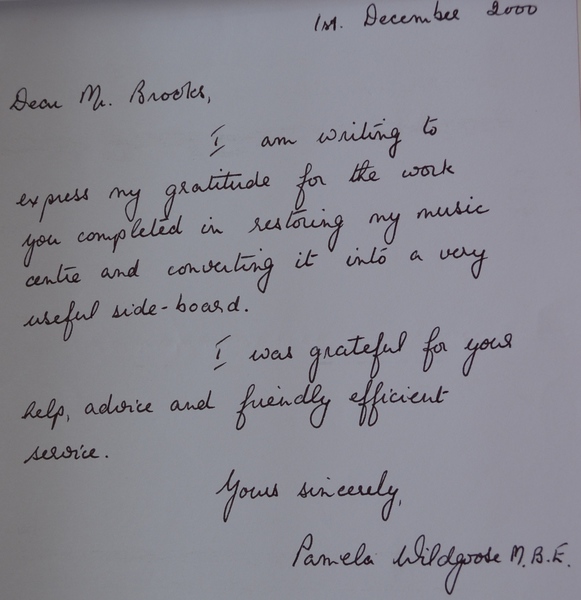 1st. December 2000
Dear Mr. Brooks,
I am writing to
express my gratitude for the work
you completed in restoring my music
centre and converting it into a very
useful side-board.
I was grateful for your
help, advice and friendly efficient
service.
Yours sincerely,
Pamela Wildgoose M.B.E.